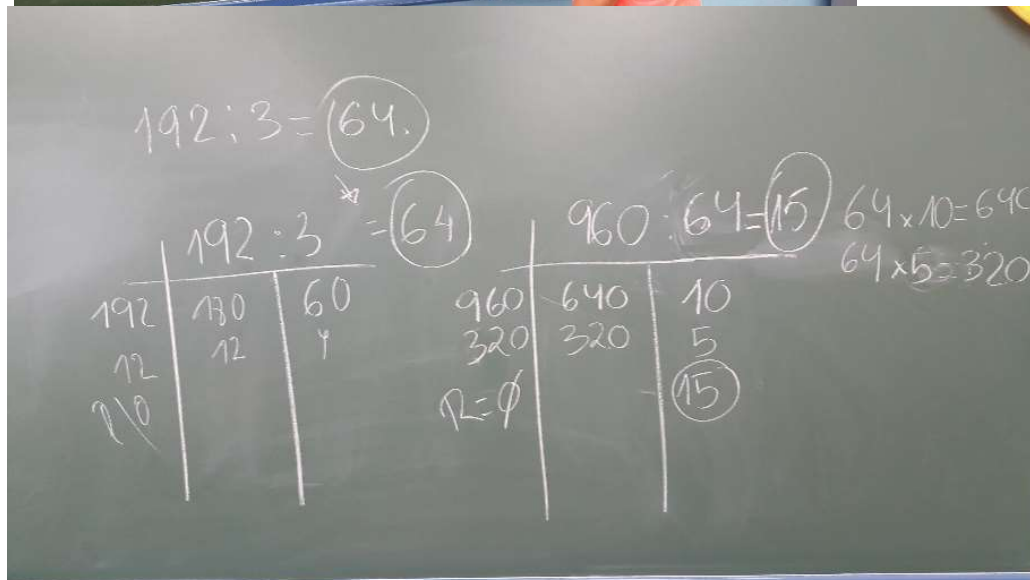 192:3=64.
192:3 =64
192 180 60
12 12 4
R\0
960:64=15
960 640 10
320 320 5
R=0 15
64×10=640
64×5=320